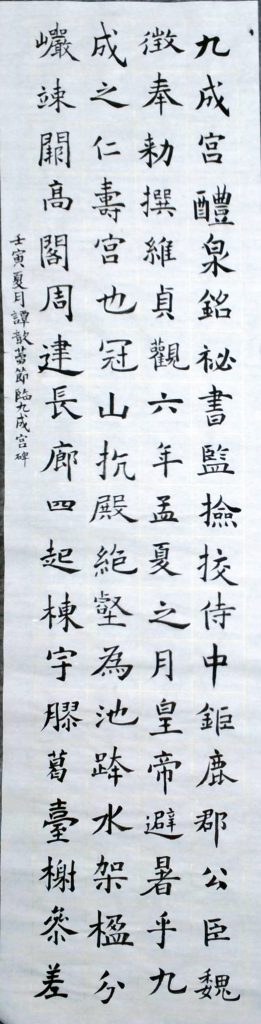 九成宮醴泉銘祕書監撿挍侍中鉅鹿郡公臣魏
徵奉勑撰維貞觀六年孟夏之月皇帝避暑乎九
成之仁壽宮也冠山抗殿絕壑為池跨水架楹分
巖竦闕高閣周建長廊四起棟宇膠葛臺榭參差
壬寅夏月譚歆苔節臨九成宮碑